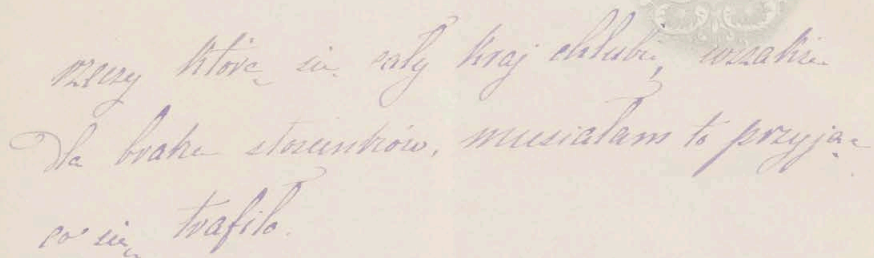 rzeczy którą się cały kraj chlubi, wszakże
dla braku stosunków, musiałam to przyjąć
co się trafiło.